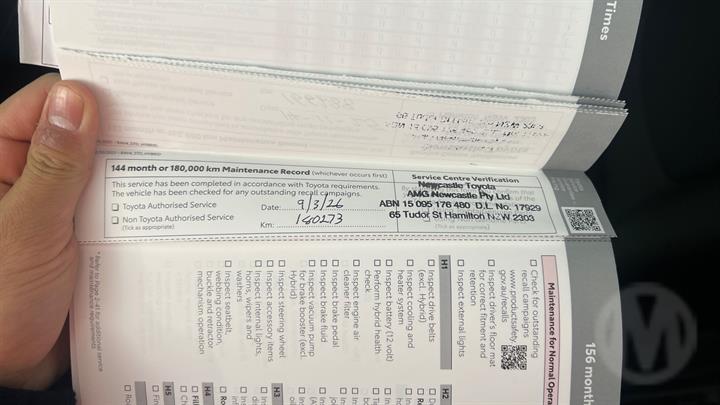 Times
144 month or 180,000 km Maintenance Record (whichever occurs first)
This service has been completed in accordance with Toyota requirements.
The vehicle has been checked for any outstanding recall campaigns.
Toyota Authorised Service
Date: 9/3/26
Non Toyota Authorised Service
(Tick as appropriate)
Km: 140273
Service Centre Verification
Newcastle Toyota
AMG Newcastle Pty Ltd
ABN 15 095 176 480 D.L. No. 17929
65 Tudor St Hamilton NSW 2303
(Tick as appropriate)
156 month
Maintenance for Normal Opera
Check for outstanding
recall campaigns
www.productsafety.
gov.au/recalls
Inspect driver's floor mat
for correct fitment and
retention
Inspect external lights
H1
Inspect drive belts
(excl. Hybrid)
Inspect cooling and
heater system
Inspect battery (12 volt)
Perform hybrid health
check
Inspect engine air
cleaner filter
Inspect brake pedal
Inspect brake fluid
Inspect vacuum pump
for brake booster (excl.
Hybrid)
Inspect steering wheel
Inspect accessory items
Inspect internal lights,
horns, wipers and
washers
Inspect seatbelt,
webbing condition,
buckle and retractor
mechanism operation
H2
H3
H4
H5
* Refer to Page 2-41 for additional service
and maintenance requirements